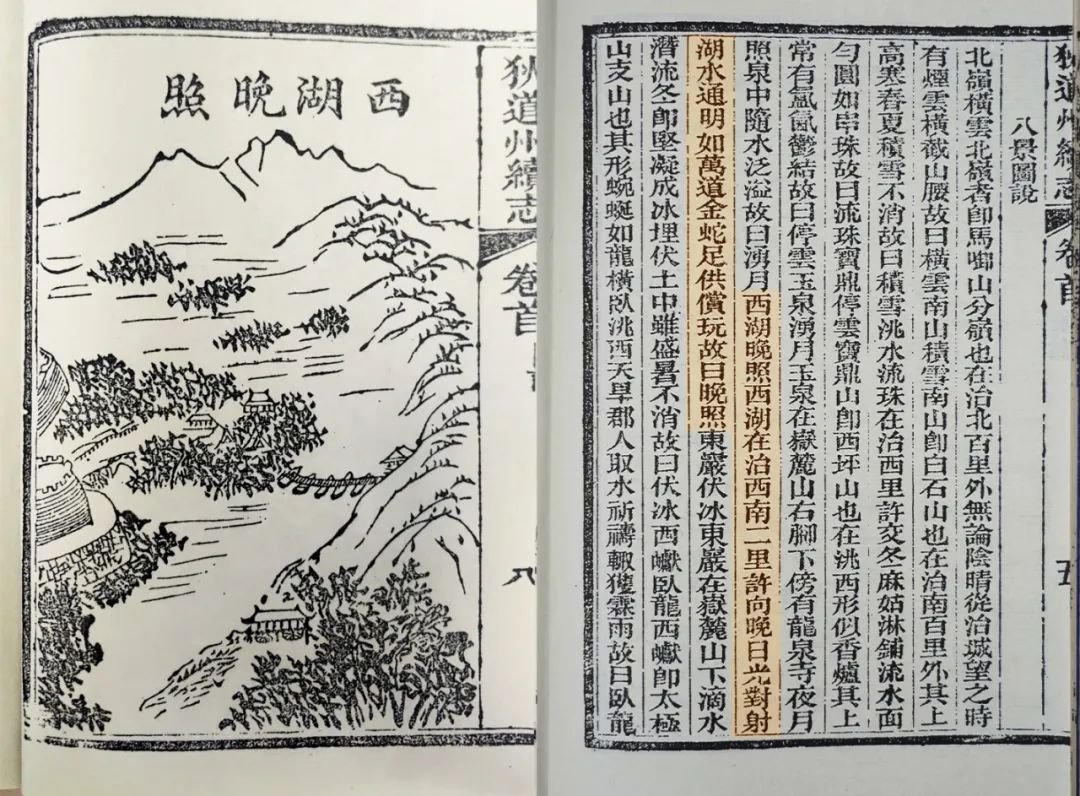 狄道州續志 卷首 五
八景圖說
北嶺橫雲北嶺者即馬啣山分嶺也在治北百里外無論陰晴從治城望之時
有煙雲橫截山腰故曰橫雲南山積雪南山即白石山也在治南百里外其上
高寒春夏積雪不消故曰積雪洮水流珠在治西里許交冬麻姑淋鋪流水面
勻圓如串珠故曰流珠寶鼎停雲寶鼎山即西坪山也在洮西形似香爐其上
常有氳氤鬱結故曰停雲玉泉湧月玉泉在嶽麓山右腳下傍有龍泉寺夜月
照泉中隨水泛溢故曰湧月西湖晚照西湖在治西南二里許向晚日光對射
湖水通明如萬道金蛇足供償玩故曰晚照東嚴伏冰東嚴在嶽麓山下滴水
潛流冬即堅凝成冰埋伏土中雖盛暑不消故曰伏冰西巘臥龍西巘即太極
山支山也其形蜿蜒如龍橫臥洮西天旱郡人取水祈禱輒獲霖雨故曰臥龍
狄道州續志 卷首 八
西湖晚照